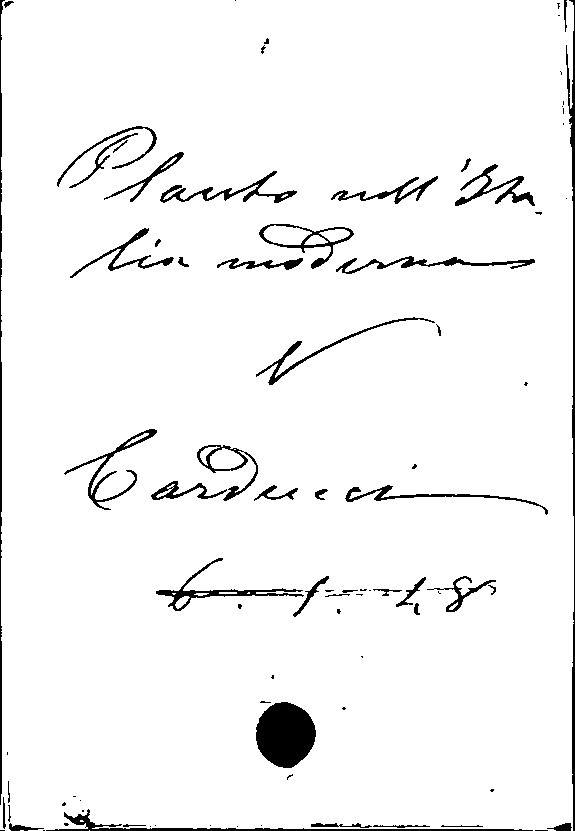 Plauto nell'Ita-
lia moderna
V
Carducci
6. 1. 48